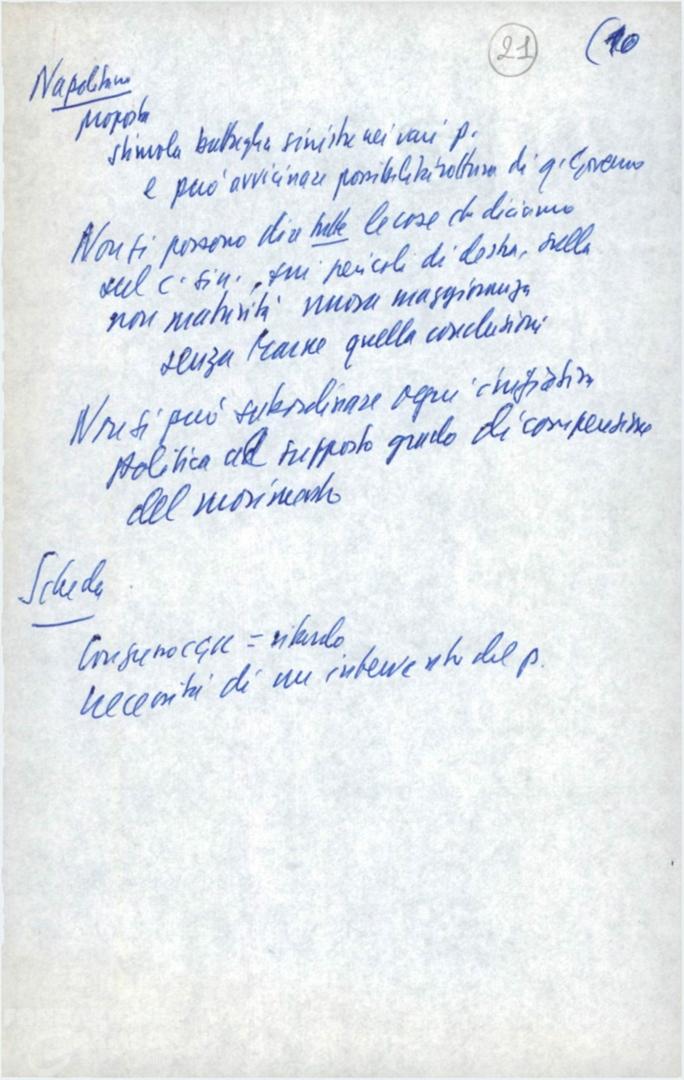 21 (10
Napolitano
proposta
stimola battaglia sinistre nei vari p.
e può avvicinare possibilità rottura di q. Governo
Non si possono dire tutte le cose che diciamo
sul c. sin., sui pericoli di destra, sulla
non maturità nuova maggioranza
senza trarne quella conclusioni
Non si può subordinare ogni iniziativa
politica al supposto grado di comprensione
del movimento
Scheda
= ritardo
necessità di un intervento del p.